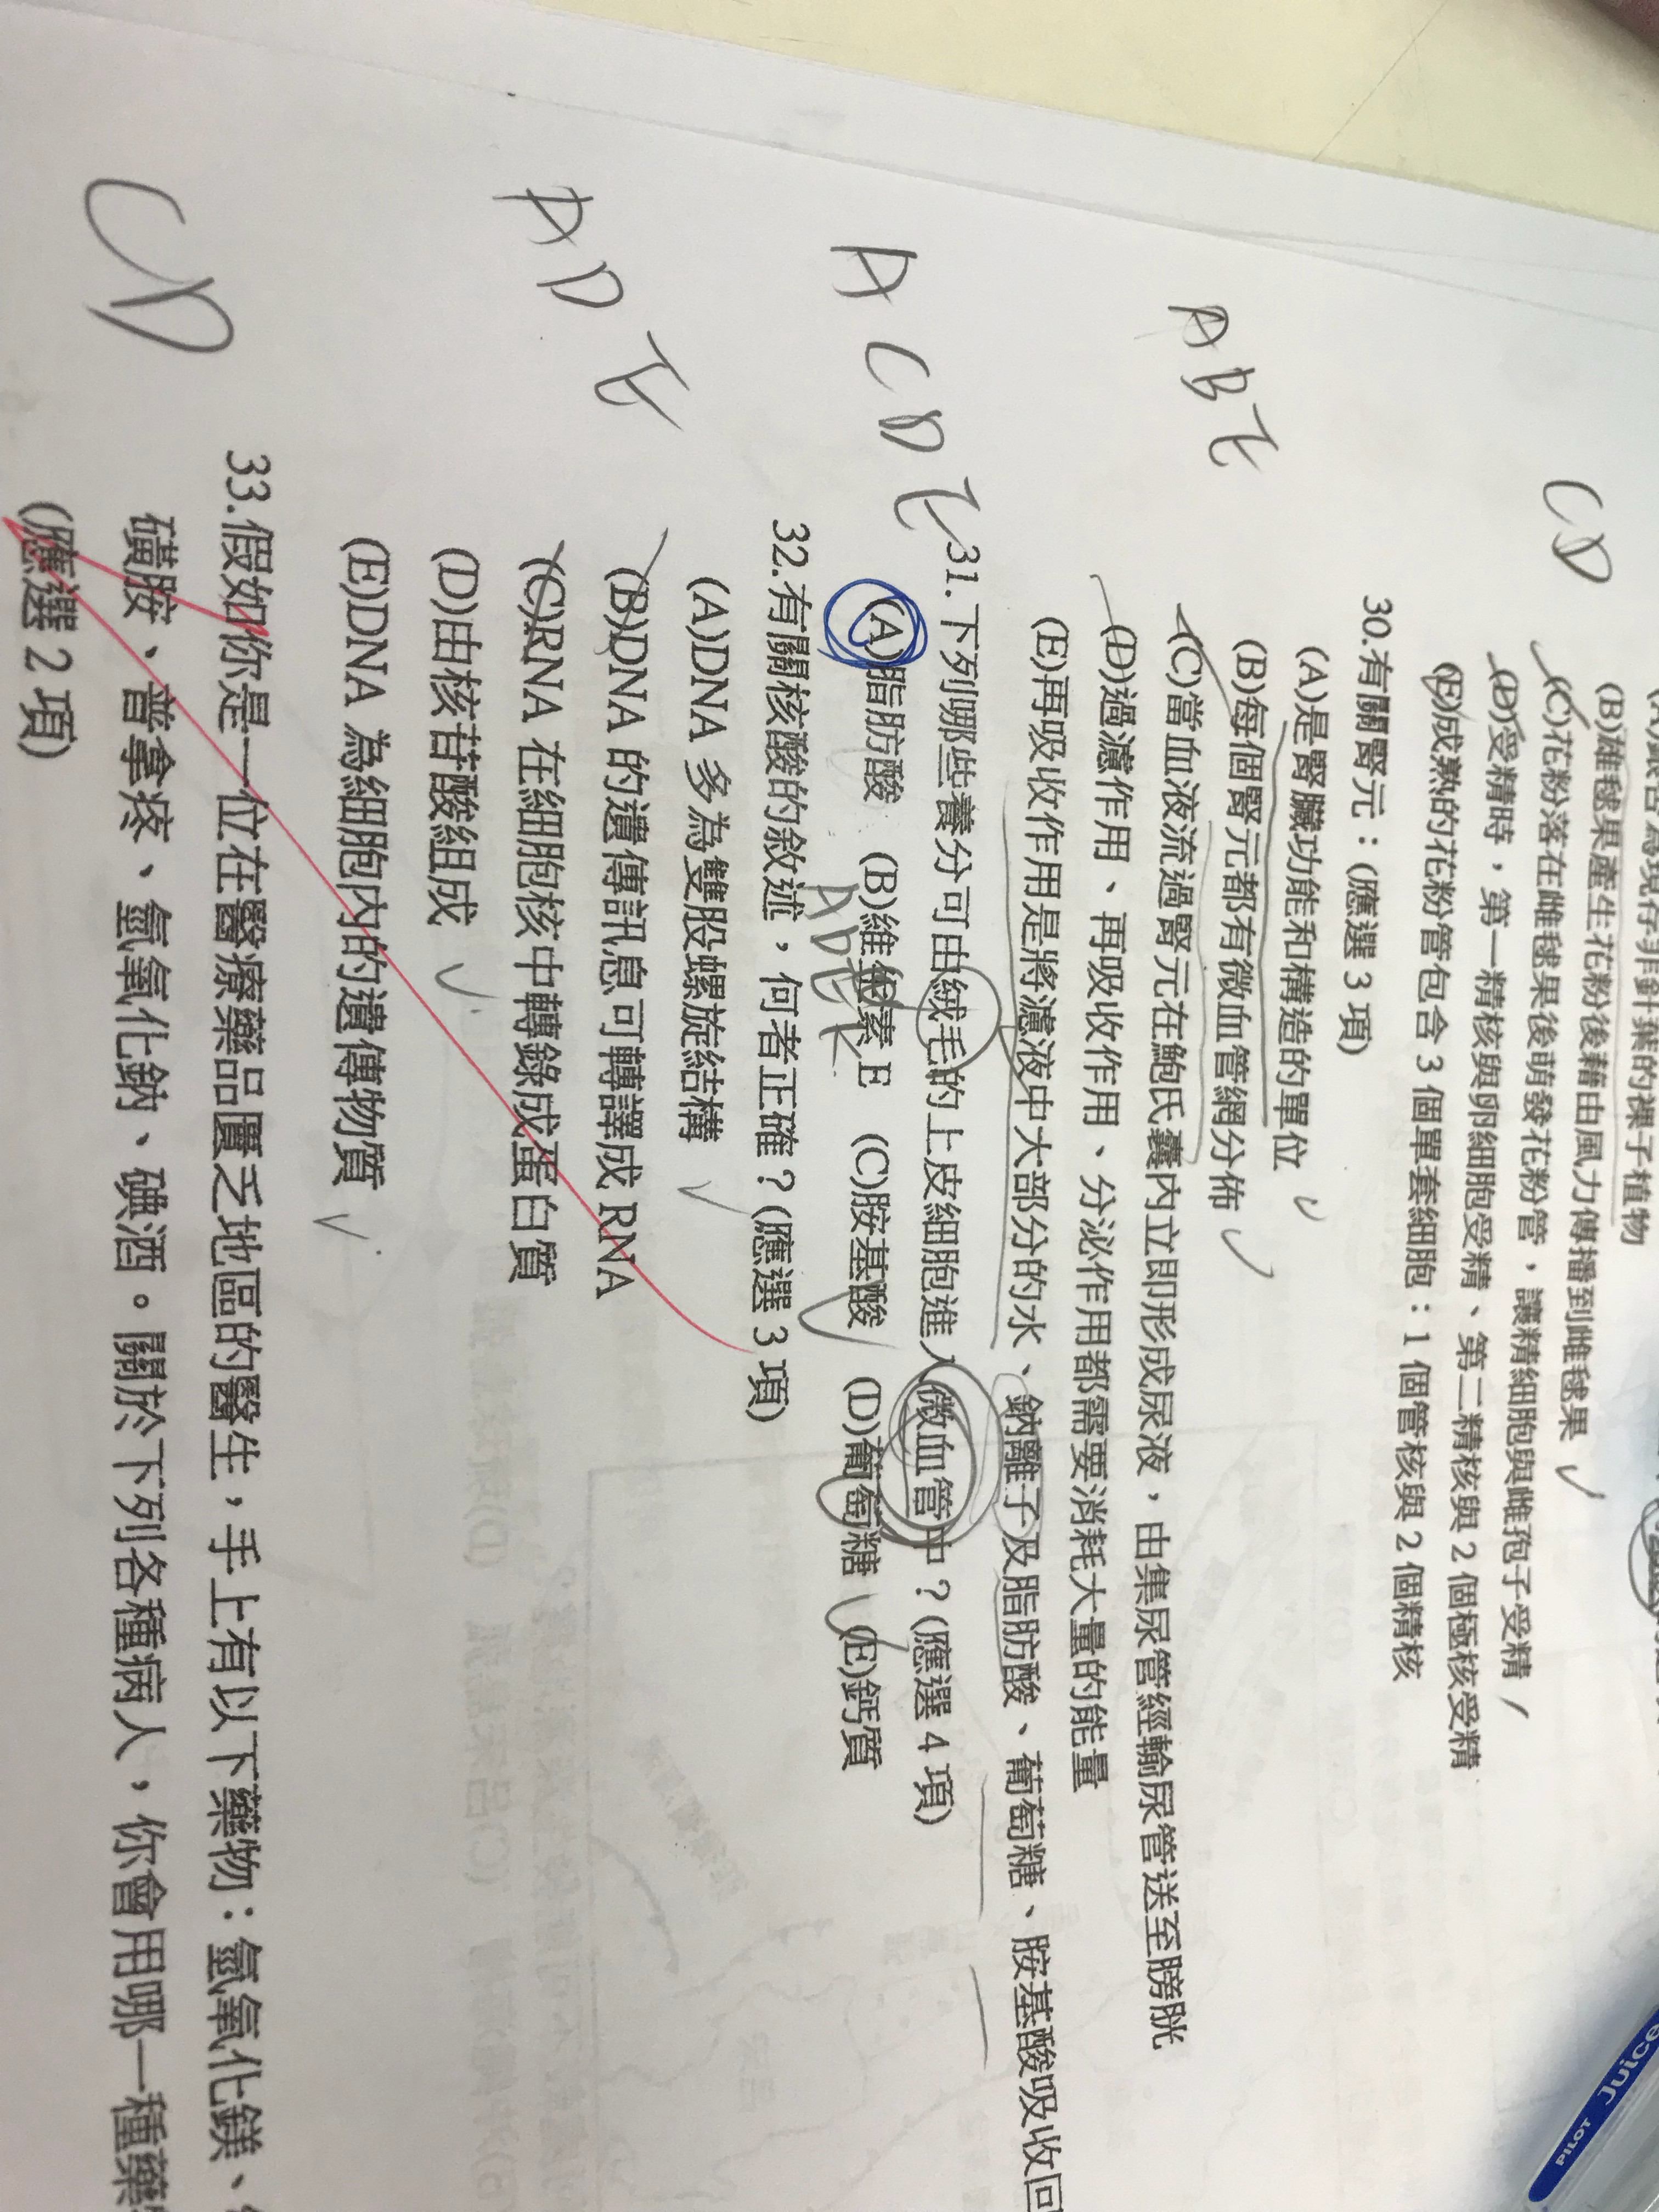 (B)雄毬果產生花粉後藉由風力傳播到雌毬果
(C)花粉落在雌毬果後萌發花粉管，讓精細胞與雌孢子受精
CD
(D)受精時，第一精核與卵細胞受精、第二精核與2個極核受精
(E)成熟的花粉管包含3個單套細胞：1個管核與2個精核
ABE
30.有關腎元：(應選3項)
(A)是腎臟功能和構造的單位
(B)每個腎元都有微血管網分佈
(C)當血液流過腎元在鮑氏囊內立即形成尿液，由集尿管經輸尿管送至膀胱
(D)過濾作用、再吸收作用、分泌作用都需要消耗大量的能量
(E)再吸收作用是將濾液中大部分的水、鈉離子及脂肪酸、葡萄糖、胺基酸吸收回
ACDE
31.下列哪些養分可由絨毛的上皮細胞進入微血管中？(應選4項)
(A)脂肪酸 (B)維他素E (C)胺基酸 (D)葡萄糖 (E)鈣質
ADE
32.有關核酸的敘述，何者正確？(應選3項)
(A)DNA多為雙股螺旋結構
(B)DNA的遺傳訊息可轉譯成RNA
(C)RNA在細胞核中轉錄成蛋白質
(D)由核苷酸組成
(E)DNA為細胞內的遺傳物質
CD
33.假如你是一位在醫療藥品匱乏地區的醫生，手上有以下藥物：氫氧化鎂、
磺胺、普拿疼、氫氧化鈉、碘酒。關於下列各種病人，你會用哪一種藥
(應選2項)
PILOT Juice